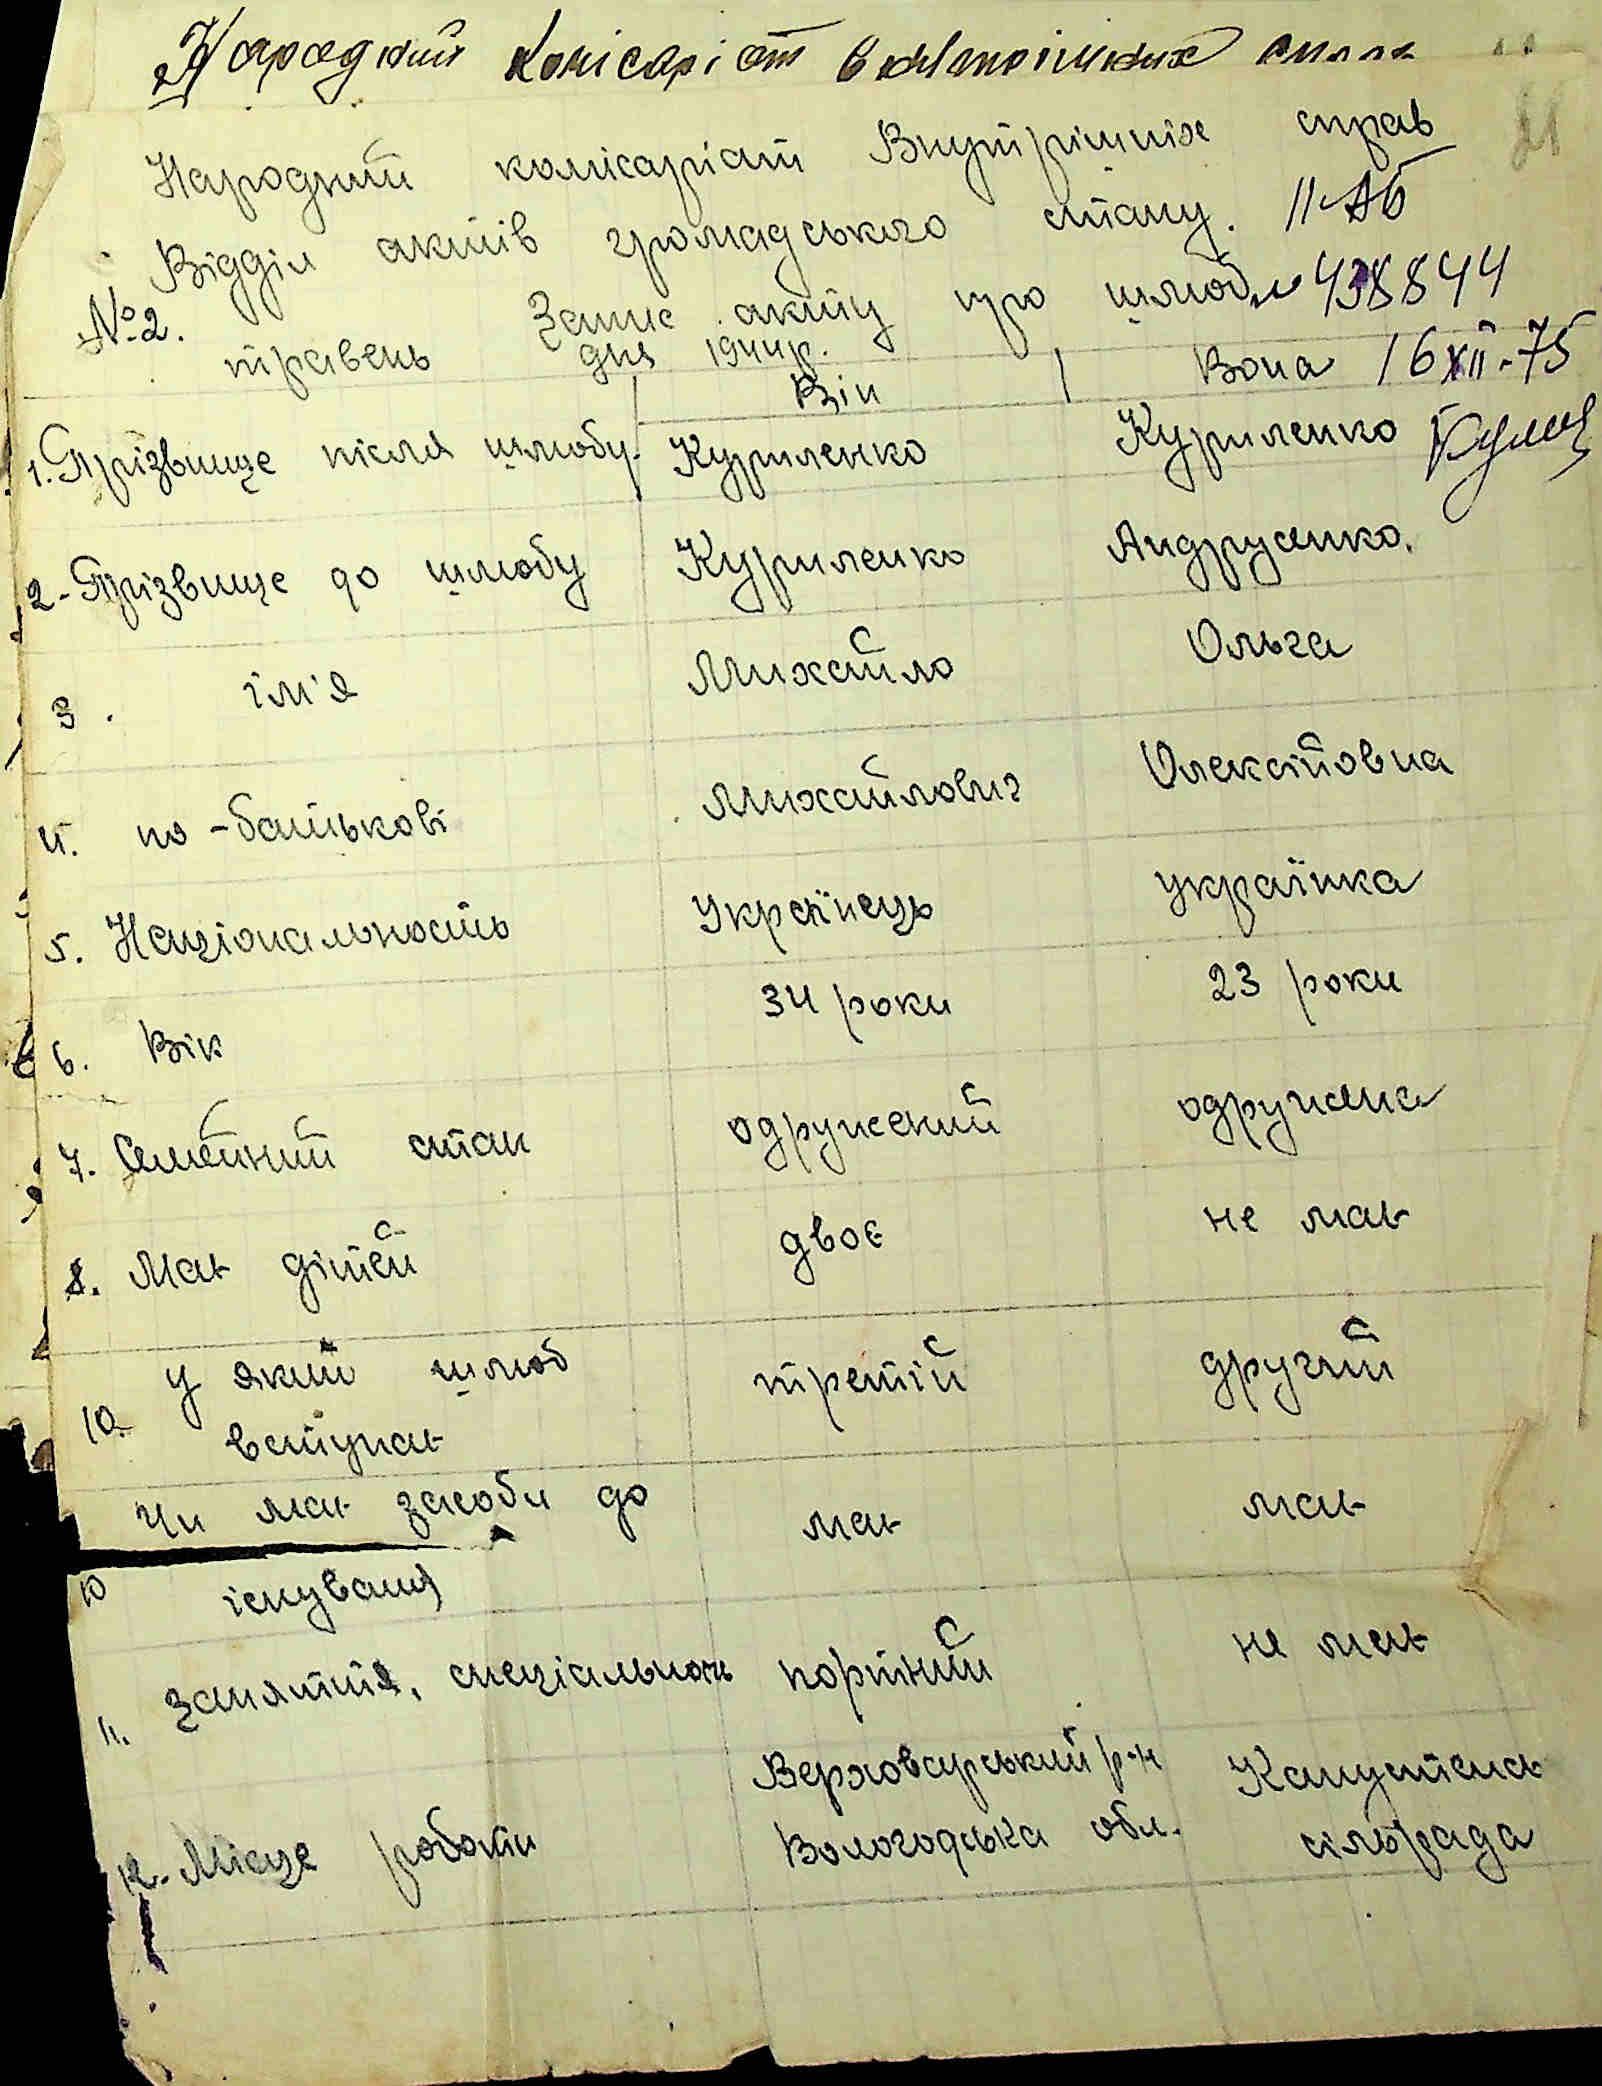 Народний комісаріат внутрішніх справ
Народний комісаріат Внутрішніх справ
Відділ актів громадського стану. II-АБ
№2. Запис акту про шлюб № 438844
травень дня 1944р.
Він Вона 16 XII-75
1. Прізвище після шлюбу. Куриленко Куриленко
2. Прізвище до шлюбу Куриленко Андрусенко.
3. ім'я Михайло Ольга
4. по-батькові Михайлович Олексійовна
5. Національность Українець українка
6. Вік 34 роки 23 роки
7. Семейний стан одружений одружена
8. Має дітей двоє не має
10. у який шлюб третій другий
вступає
Чи має засоби до має має
10 існування
11. заняття, спеціальность портний не має
12. Місце роботи Верховарський р-н Капустенсь
Вологодська обл. сільрада